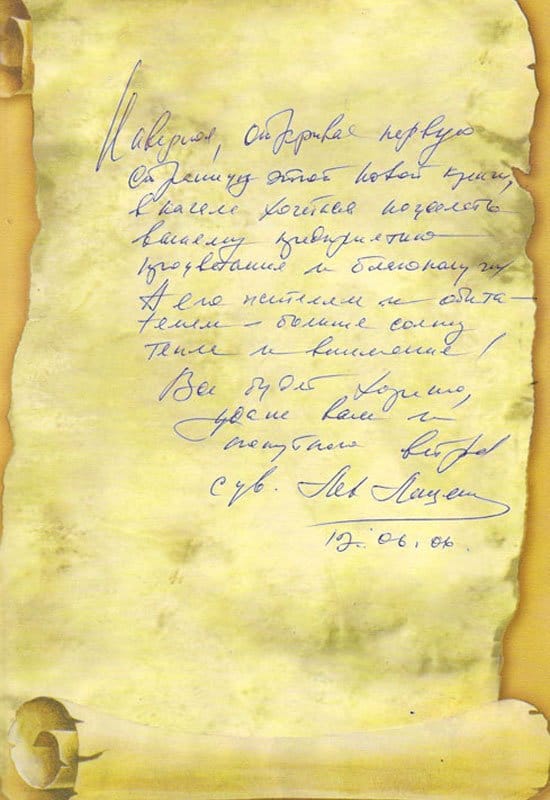 Наверное, открывая первую
страницу этой новой книги,
в начале хочется пожелать
вашему предприятию
процветания и благополучия
А его жителям и обита-
телям – больше солнца
тепла и внимания!
Все будет хорошо,
удачи вам и
попутного ветра
с ув. Лев Лещенко
12.06.06.